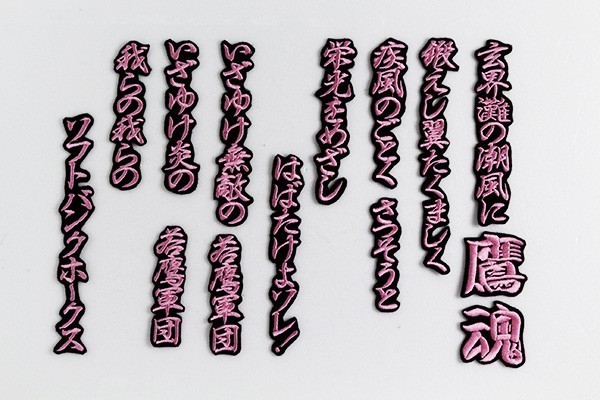 玄界灘の潮風に
鷹魂
鍛えし翼たくましく
疾風のごとく さっそうと
栄光をめざし
はばたけよソレ!
いざゆけ無敵の
若鷹軍団
いざゆけ炎の
若鷹軍団
我らの我らの
ソフトバンクホークス